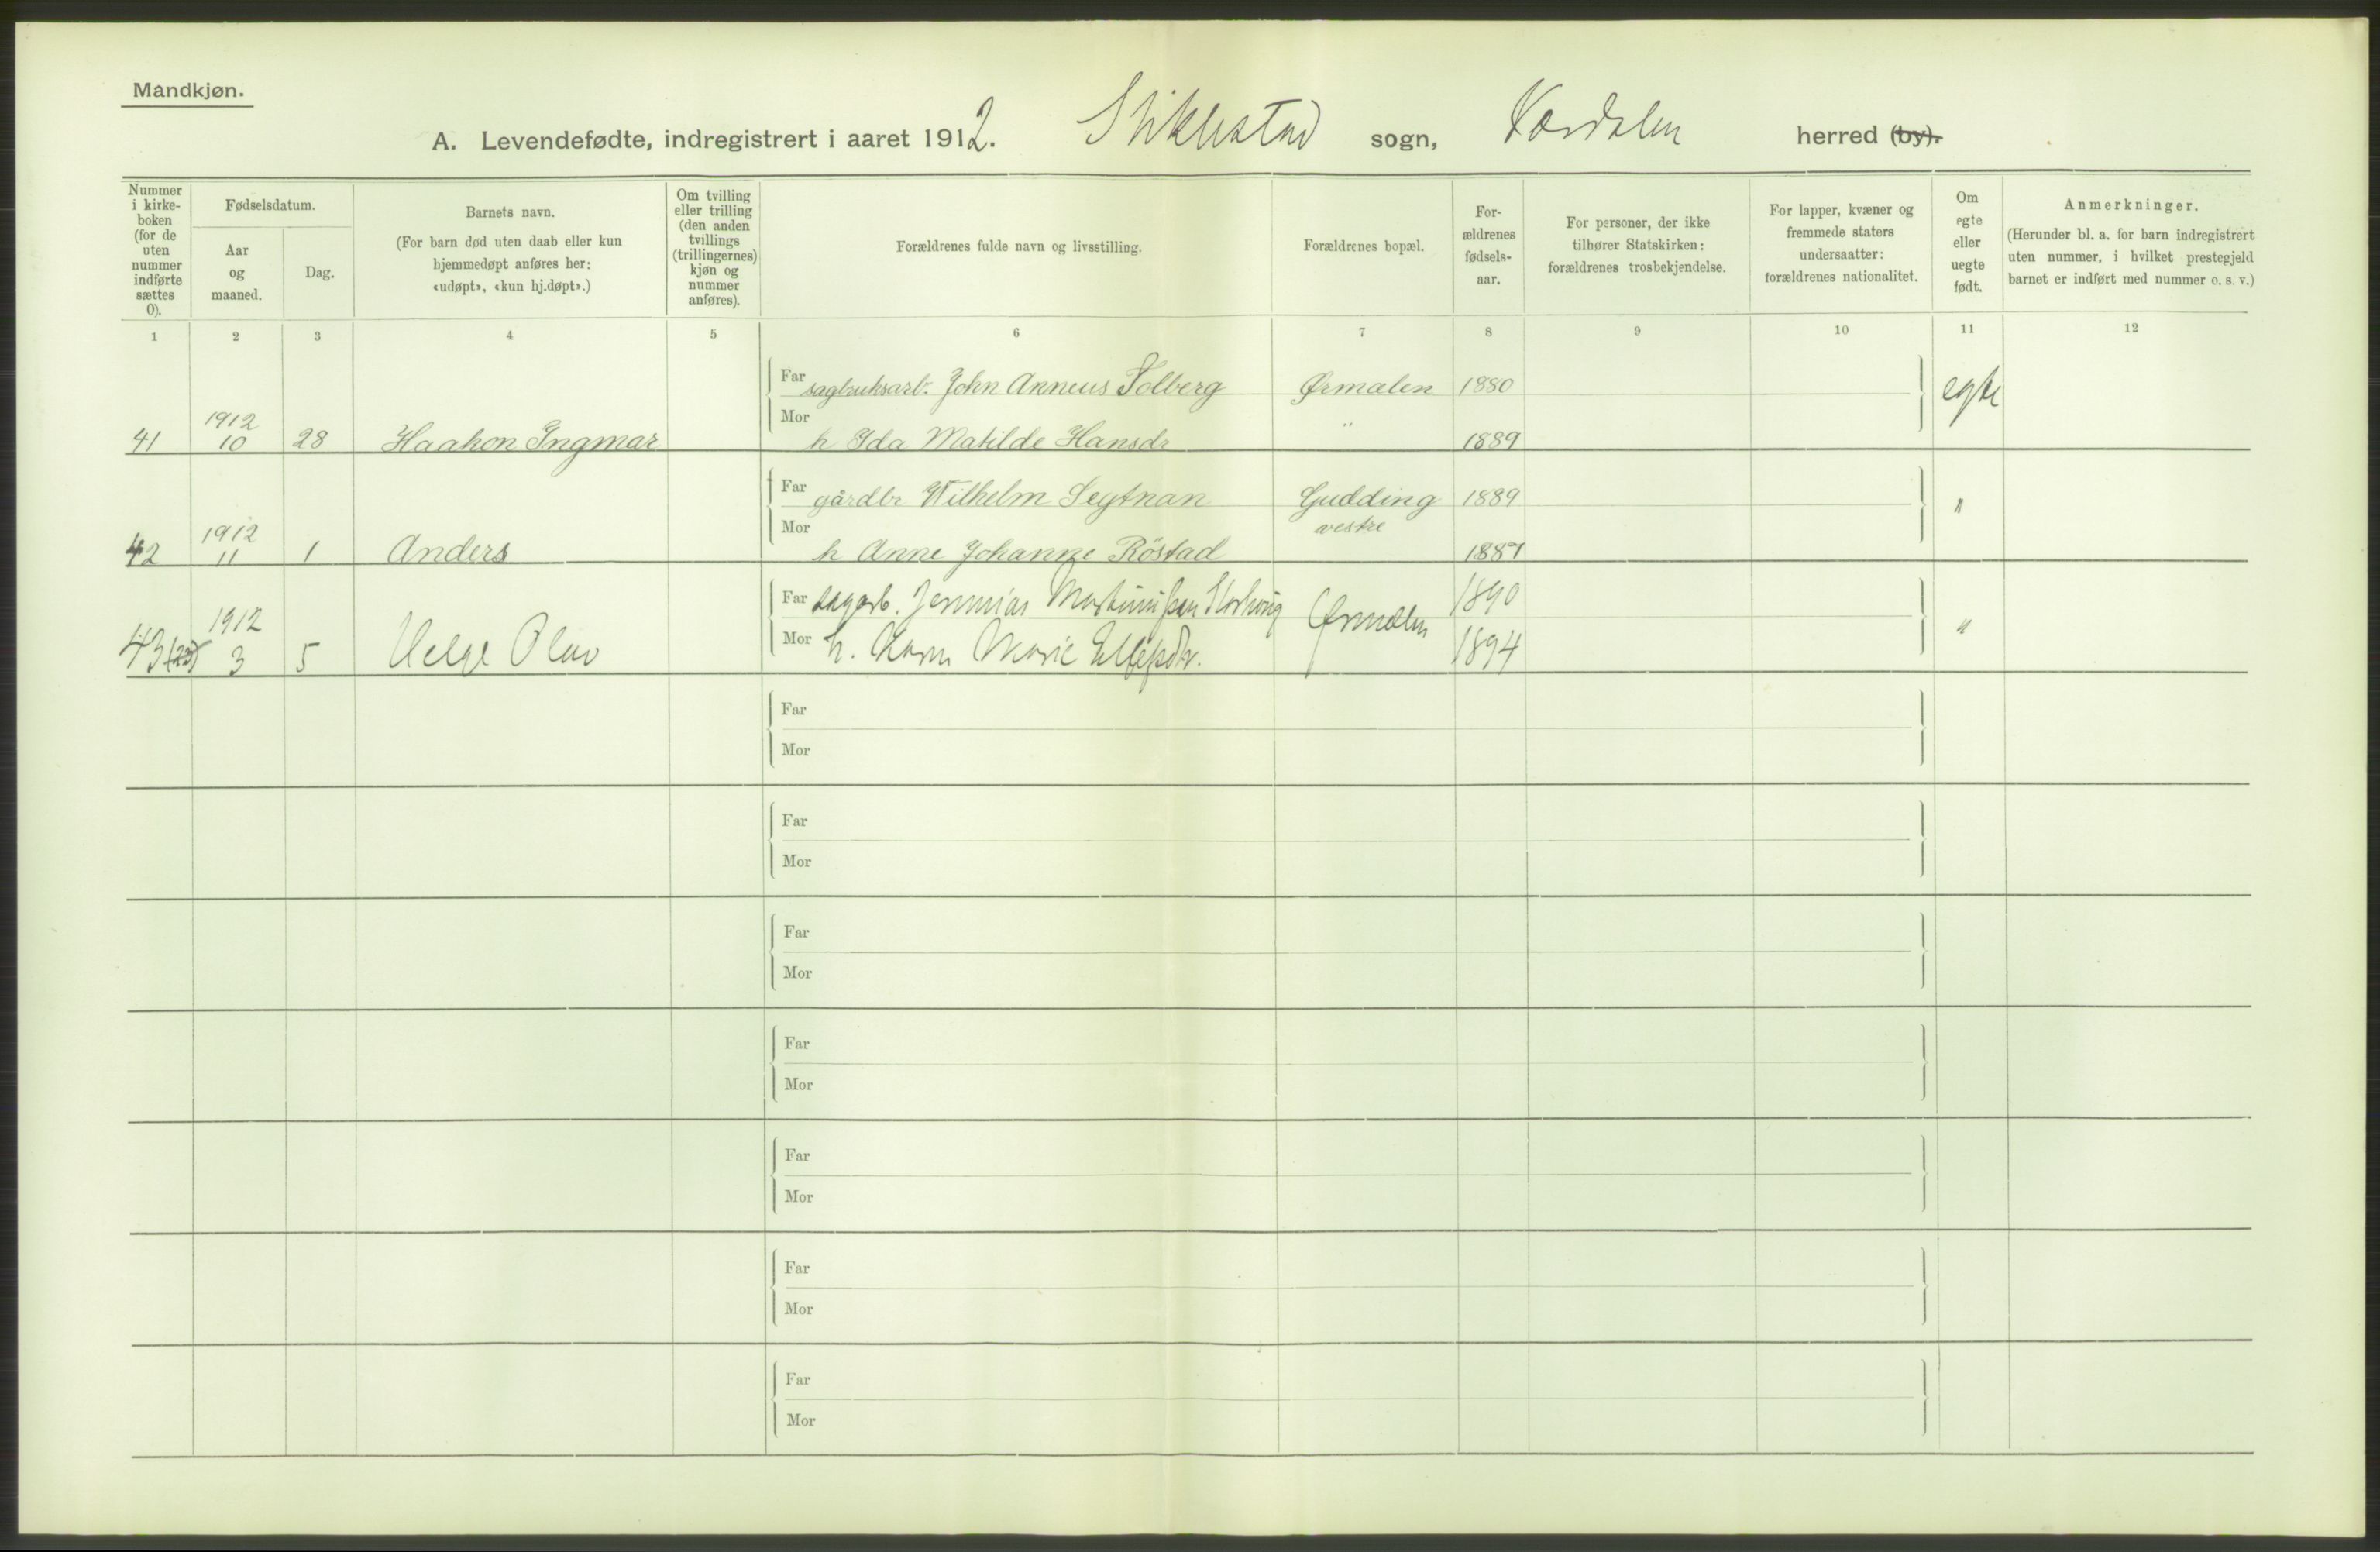 Mandkjøn.
A. Levendefødte, indregistrert i aaret 1912. Stiklestad sogn, Værdalen herred (by).
Nummer i kirke-boken (for de uten nummer indførte sættes 0).
Fødselsdatum.
Aar og maaned.
Dag.
Barnets navn.
(For barn død uten daab eller kun hjemmedøpt anføres her: «udøpt», «kun hj.døpt».)
Om tvilling eller trilling (den anden tvillings (trillingernes) kjøn og nummer anføres).
Forældrenes fulde navn og livsstilling.
Forældrenes bopæl.
For-ældrenes fødsels-aar.
For personer, der ikke tilhører Statskirken: forældrenes trosbekjendelse.
For lapper, kvæner og fremmede staters undersaatter: forældrenes nationalitet.
Om egte eller uegte født.
Anmerkninger.
(Herunder bl. a. for barn indregistrert uten nummer, i hvilket prestegjeld barnet er indført med nummer o. s. v.)
1 2 3 4 5 6 7 8 9 10 11 12
Far sagbruksarb. John Anneus Solberg Ørmælen 1880 egte
Mor
41 1912 10 28 Haakon Ingmar h Ida Matilde Hansdr " 1889
Far gårdbr Wilhelm Segtnan Gudding 1889 "
Mor vestre
42 1912 11 1 Anders h Anne Johanne Röstad 1887
Far sagarb. Jeremias Martinussen Storhaug Ørmælen 1890
43 (23) 1912 3 5 Helge Olav Mor h. Karen Marie 1894 "
Far
Mor
Far
Mor
Far
Mor
Far
Mor
Far
Mor
Far
Mor
Far
Mor